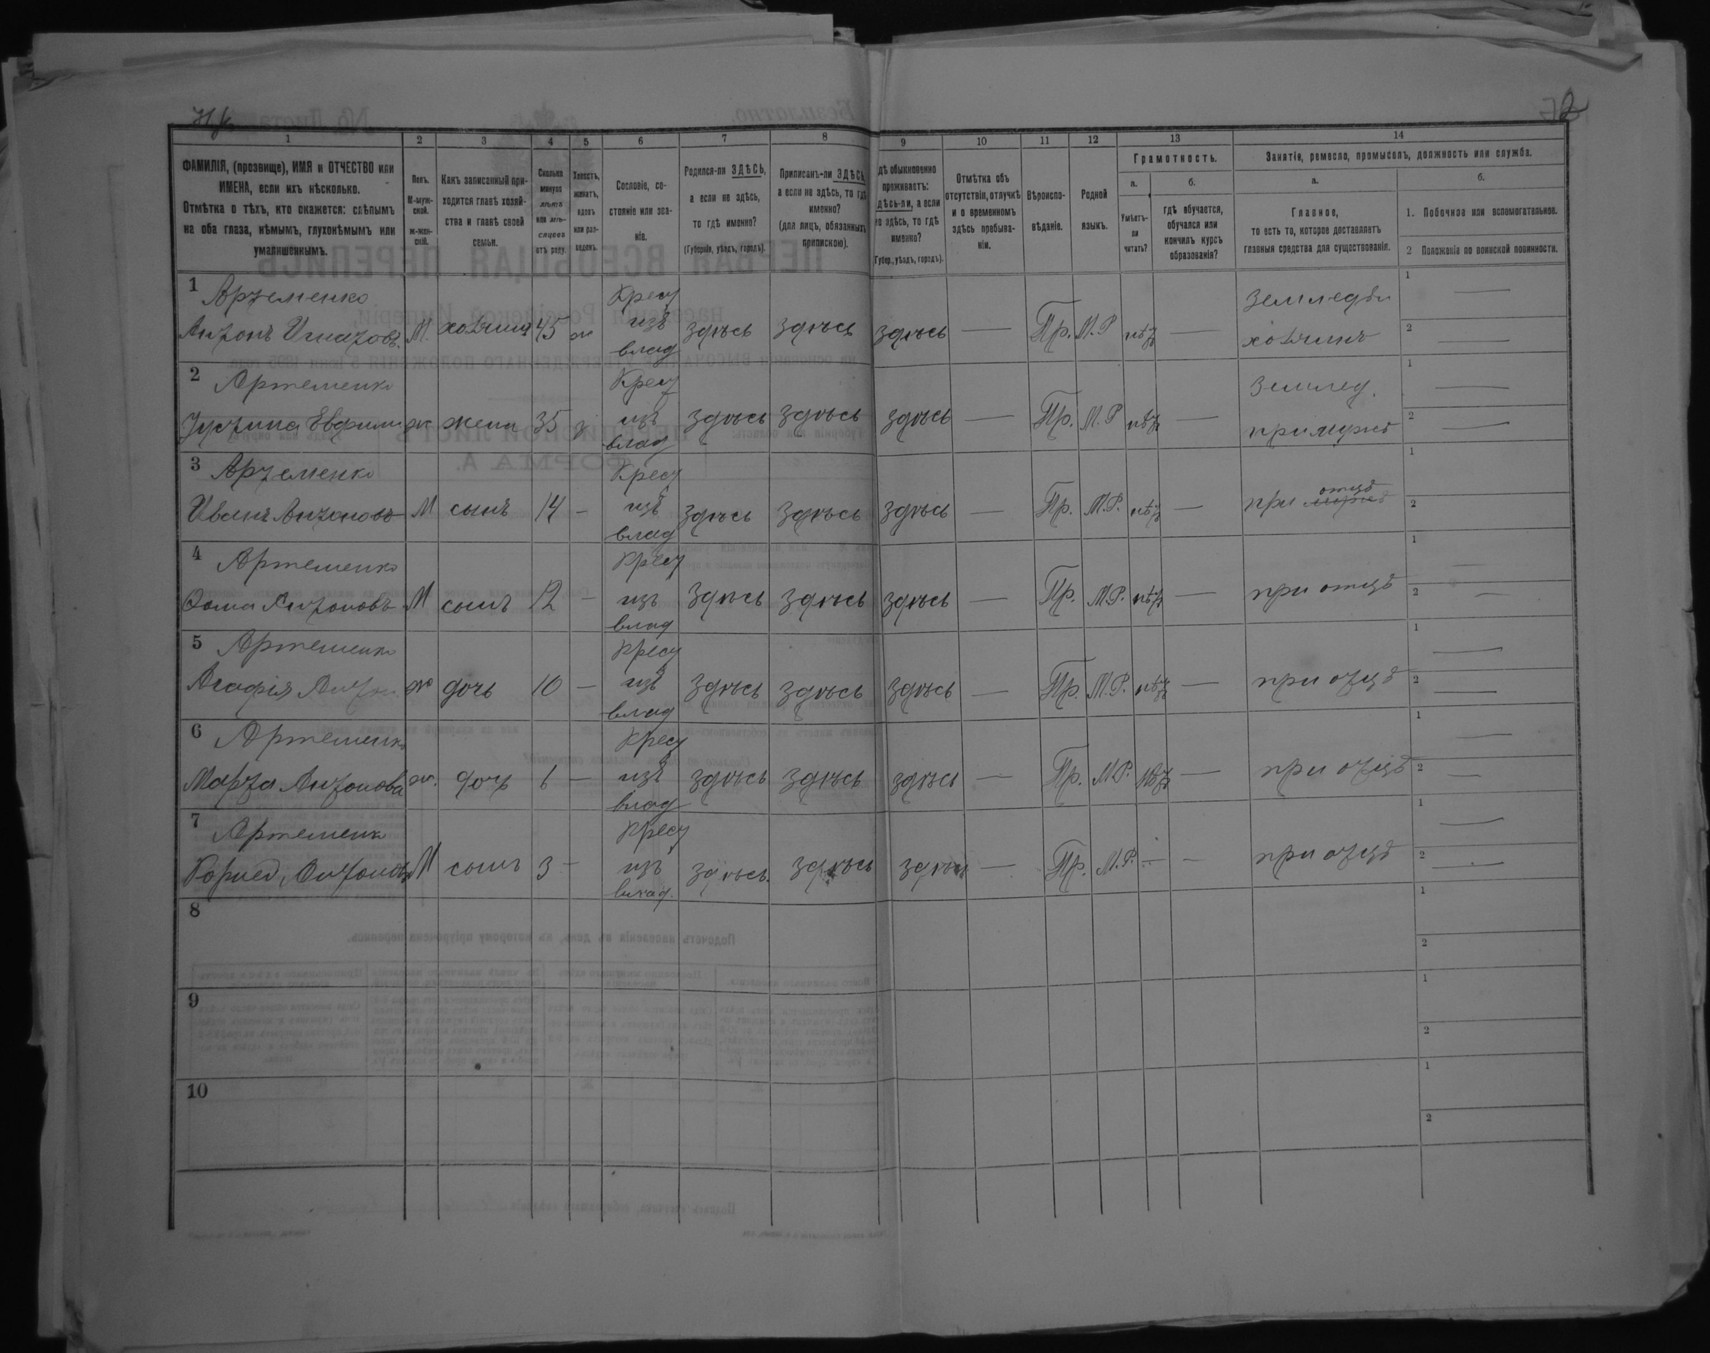 1 2 3 4 5 6 7 8 9 10 11 12 13 14
ФАМИЛІЯ, (прозвище), ИМЯ и ОТЧЕСТВО или
ИМЕНА, если ихъ нѣсколько.
Отмѣтка о тѣхъ, кто окажется: слѣпымъ
на оба глаза, нѣмымъ, глухонѣмымъ или
умалишеннымъ.
Полъ.
М-муж-
ской.
ж-жен-
скій.
Какъ записанный при-
ходится главѣ хозяй-
ства и главѣ своей
семьи.
Сколько
минуло
лѣтъ
или мѣ-
сяцевъ
отъ роду.
Холостъ,
женатъ,
вдовъ
или раз-
веденъ.
Сословіе, со-
стояніе или зва-
ніе.
Родился-ли ЗДѢСЬ,
а если не здѣсь,
то гдѣ именно?
(Губернія, уѣздъ, городъ).
Приписанъ-ли ЗДѢСЬ,
а если не здѣсь, то гдѣ
именно?
(для лицъ, обязанныхъ
припискою).
гдѣ обыкновенно
проживаетъ:
здѣсь-ли, а если
не здѣсь, то гдѣ
именно?
(Губер., уѣздъ, городъ).
Отмѣтка объ
отсутствіи, отлучкѣ
и о временномъ
здѣсь пребыва-
ніи.
Вѣроиспо-
вѣданіе.
Родной
языкъ.
Грамотность.
а.
Умѣетъ-
ли
читать?
б.
гдѣ обучается,
обучался или
кончилъ курсъ
образованія?
Занятіе, ремесло, промыселъ, должность или служба.
а.
Главное,
то есть то, которое доставляетъ
главныя средства для существованія.
б.
1. Побочное или вспомогательное.
2 Положеніе по воинской повинности.
1 Артеменко Крест Земледѣл 1 —
Антонъ Игнатовъ М. хозяинъ 45 ж изъ здѣсь здѣсь здѣсь — Пр. М.Р нѣт — хозяинъ 2 —
влад
2 Артеменко Крест Землед. 1 —
Устина Ефим ж жена 35 з изъ здѣсь здѣсь здѣсь — Пр. М.Р нѣт — при мужѣ 2 —
влад
3 Артеменко Крест отцѣ 1
Иванъ Антоновъ М сынъ 14 — изъ здѣсь здѣсь здѣсь — Пр. М.Р. нѣт — при мужѣ 2
влад
4 Артеменко Крест 1 —
Ѳома Антоновъ М сынъ 12 — изъ здѣсь здѣсь здѣсь — Пр. М.Р. нѣт при отцѣ 2 —
влад
5 Артеменко Крест 1 —
Агафія Антон ж дочь 10 — изъ здѣсь здѣсь здѣсь — Пр. М.Р. нѣт — при отцѣ 2 —
влад
6 Артеменко Крест 1 —
Марта Антонова ж. дочь 6 — изъ здѣсь здѣсь здѣсь — Пр. М.Р. нѣт — при отцѣ 2 —
влад
7 Артеменк Крест 1 —
Антоновъ М сынъ 3 — изъ здѣсь. здѣсь здѣсь — Пр. М.Р. — — при отцѣ 2 —
влад.
8 1
2
9 1
2
10 1
2